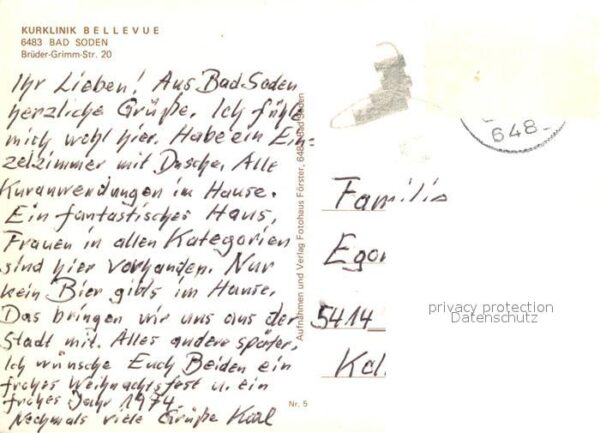 KURKLINIK BELLEVUE
6483 BAD SODEN
Brüder-Grimm-Str. 20
Ihr Lieben! Aus Bad-Soden
herzliche Grüße. Ich fühle
mich wohl hier. Habe ein Ein-
zelzimmer mit Dusche. Alle
Kuranwendungen im Hause.
Ein fantastisches Haus,
Frauen in allen Kategorien
sind hier vorhanden. Nur
kein Bier gibts im Hause.
Das bringen wir uns aus der
Stadt mit. Alles andere später.
Ich wünsche Euch Beiden ein
frohes Weihnachtsfest u. ein
frohes Jahr 1974.
Nochmals viele Grüße Karl
Aufnahmen und Verlag Fotohaus Förster, 6483 Bad Soden
Nr. 5
648
Familie
Egon
5414
privacy protection
Datenschutz